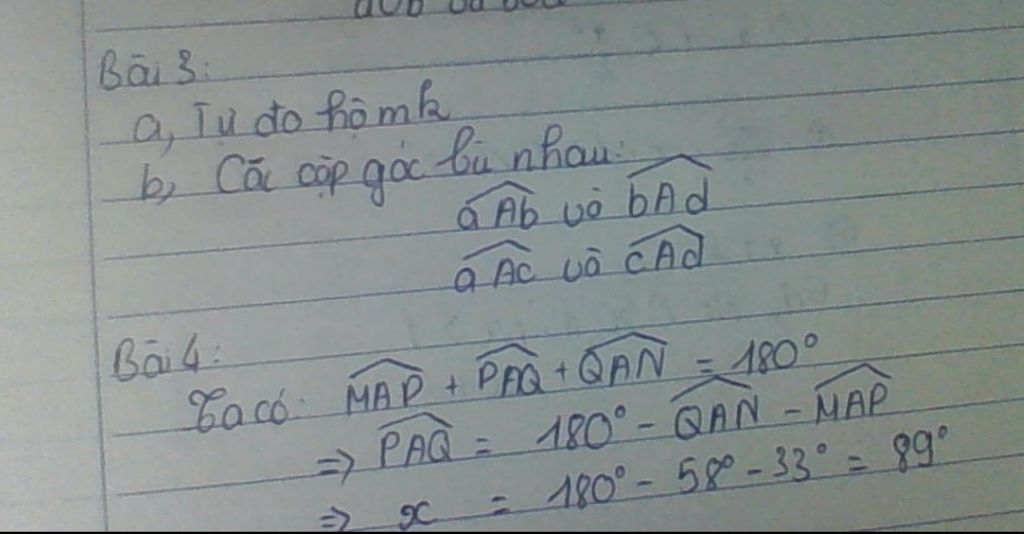 Bài 3:
a, Tự đo hộ mk
b, Các cặp góc bù nhau:
aAb và bAd
aAc và cAd
Bài 4:
Ta có: MAP + PAQ + QAN = 180°
=> PAQ = 180° - QAN - MAP
=> x = 180° - 58° - 33° = 89°